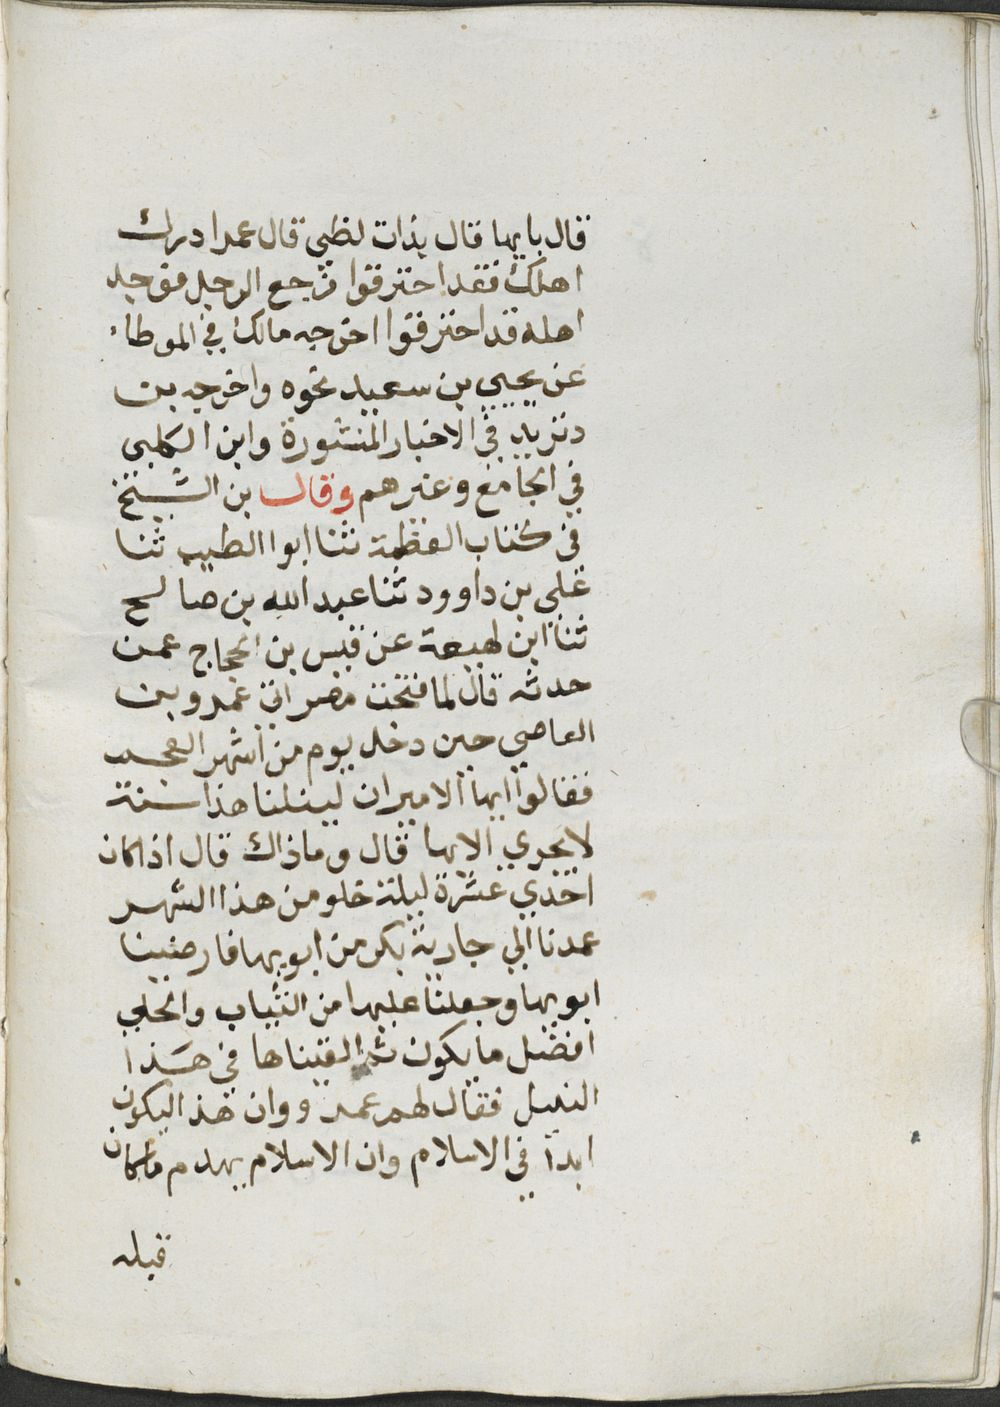 قال بايها قال بذات لظي قال عمر ادرك
اهلك فقد احترقوا فرجع الرجل فوجد
اهله قد احترقوا اخرجه مالك في الموطاء
عن يحيي بن سعيد نحوه واخرجه بن
دريد في الاخبار المنشورة وابن الكلبي
في الجامع وغيرهم وقال بن الشيخ
في كتاب العظمة ثنا ابوا الطيب ثنا
علي بن داوود ثنا عبد الله بن صالح
ثنا ابن لهيعة عن قيس بن الحجاج عمن
حدثه قال لما فتحت مصر اتي عمرو بن
العاصي حين دخل يوم من اشهر العجم
فقالوا ايها الامير ان لنيلنا هذا سنة
لا يجري الا بها قال وما ذاك قال اذا كان
احدي عشرة ليلة خلو من هذا الشهر
عمدنا الي جارية بكر من ابويها فارضينا
ابويها وجعلنا عليها من الثياب والحلي
افضل ما يكون ثم القيناها في هذا
النيل فقال لهم عمرو وان هذا اليكون
ابدا في الاسلام وان الاسلام يهدم ماكان
قبله